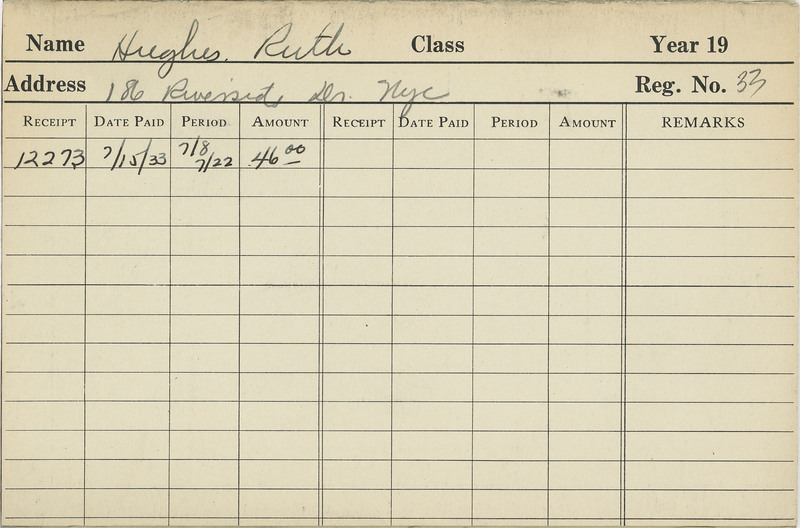 Name Hughes, Ruth Class Year 19
Address 186 Riverside Dr. Nyc Reg. No. 33
RECEIPT DATE PAID PERIOD AMOUNT RECEIPT DATE PAID PERIOD AMOUNT REMARKS
12273 7/15/33 7/8 7/22 46 00